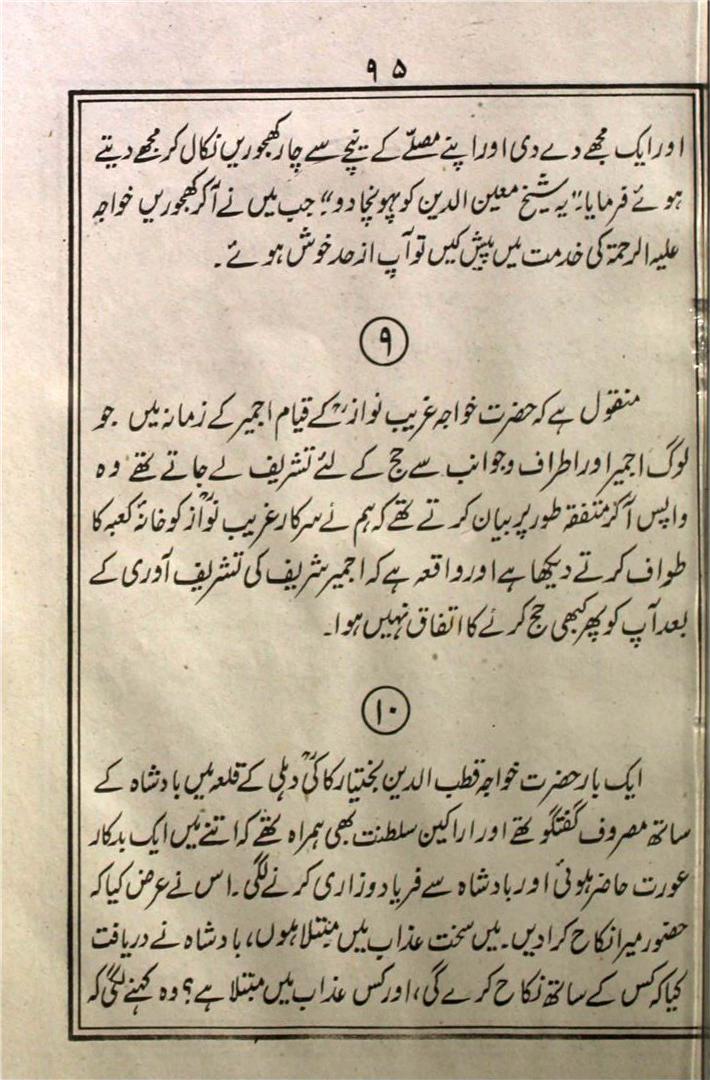 ۹۵
اور ایک مجھے دے دی اور اپنے مصلّے کے نیچے سے چار کھجوریں نکال کر مجھے دیتے
ہوئے فرمایا: "یہ شیخ معین الدین کو پہونچا دو"۔ جب میں نے آکر کھجوریں خواجہ
علیہ الرحمۃ کی خدمت میں پیش کیں تو آپ از حد خوش ہوئے۔
۹
منقول ہے کہ حضرت خواجہ غریب نوازؒ کے قیام اجمیر کے زمانہ میں جو
لوگ اجمیر اور اطراف و جوانب سے حج کے لئے تشریف لے جاتے تھے وہ
واپس آکر متفقہ طور پر بیان کرتے تھے کہ ہم نے سرکار غریب نوازؒ کو خانۂ کعبہ کا
طواف کرتے دیکھا ہے اور واقعہ ہے کہ اجمیر شریف کی تشریف آوری کے
بعد آپ کو پھر کبھی حج کرنے کا اتفاق نہیں ہوا۔
۱۰
ایک بار حضرت خواجہ قطب الدین بختیار کاکیؒ دہلی کے قلعہ میں بادشاہ کے
ساتھ مصروف گفتگو تھے اور اراکین سلطنت بھی ہمراہ تھے کہ اتنے میں ایک بدکار
عورت حاضر ہوئی اور بادشاہ سے فریاد و زاری کرنے لگی۔ اس نے عرض کیا کہ
حضور میرا نکاح کرا دیں۔ میں سخت عذاب میں مبتلا ہوں، بادشاہ نے دریافت
کیا کہ کس کے ساتھ نکاح کرے گی، اور کس عذاب میں مبتلا ہے؟ وہ کہنے لگی کہ